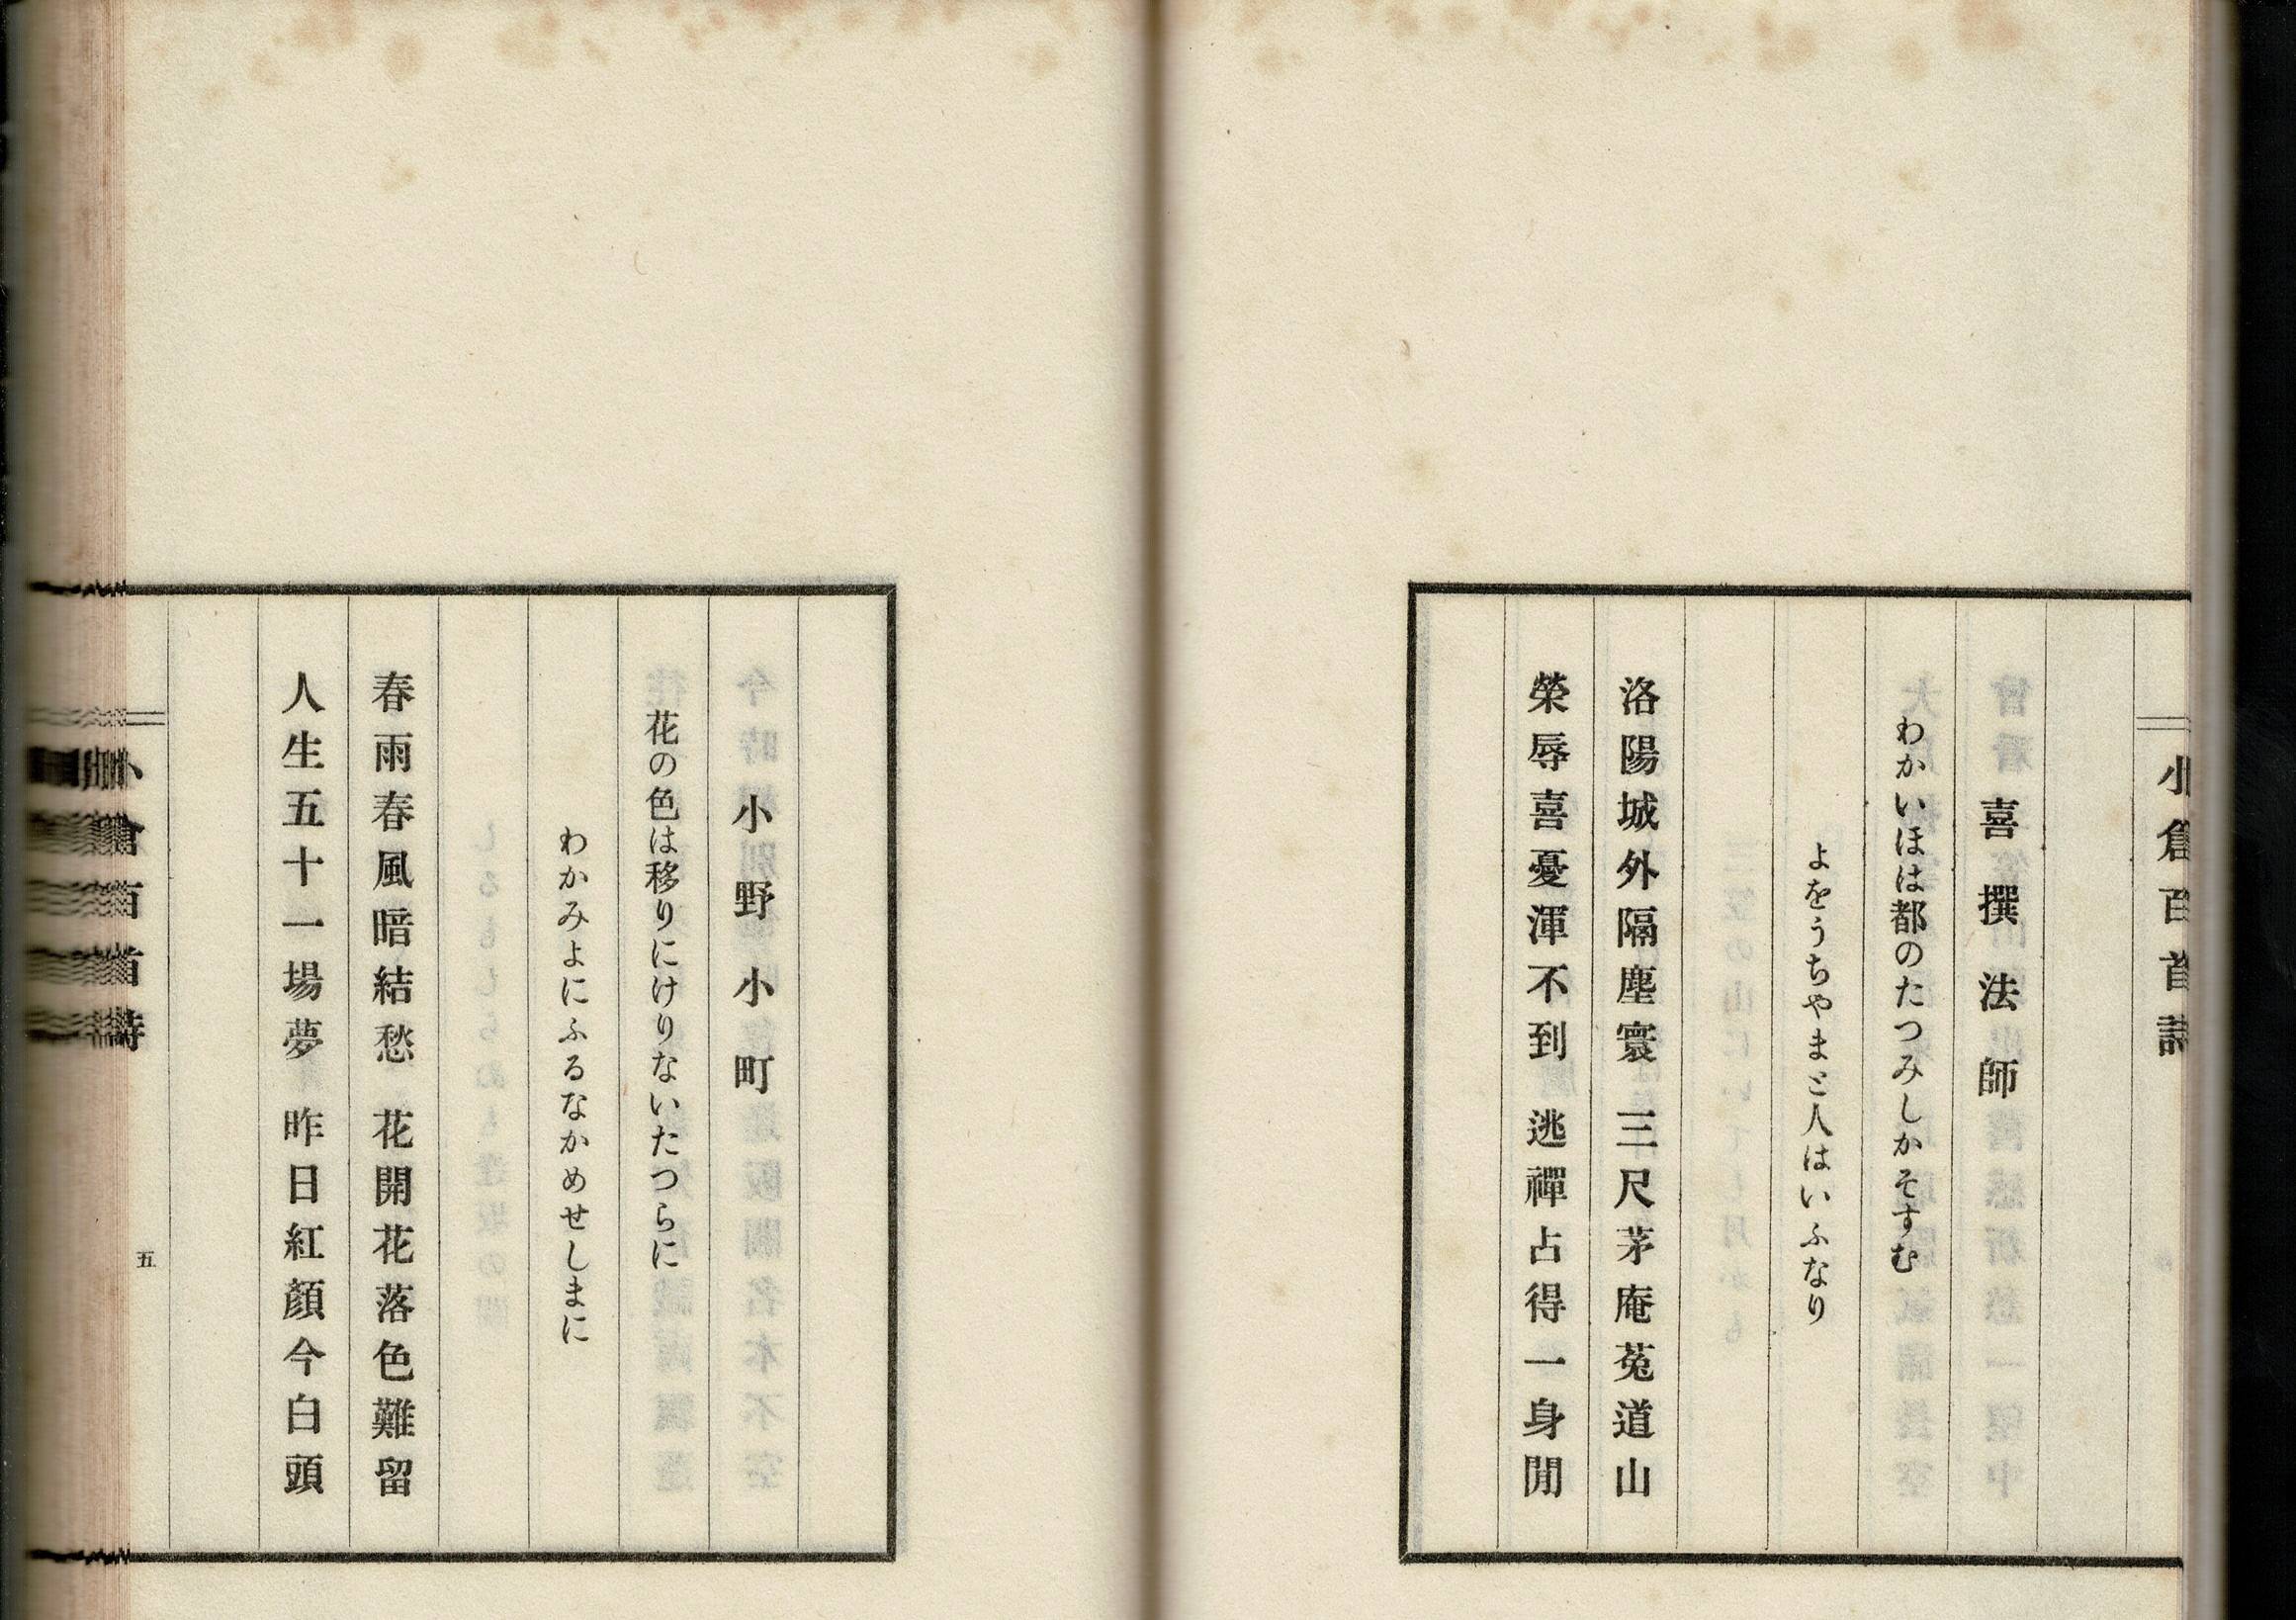 小倉百首詩
喜撰法師
わかいほは都のたつみしかそすむ
よをうちやまと人はいふなり
洛陽城外隔塵寰　三尺茅庵菟道山
榮辱喜憂渾不到　逃禪占得一身閒
小野小町
花の色は移りにけりないたつらに
わかみよにふるなかめせしまに
春雨春風暗結愁　花開花落色難留
人生五十一場夢　昨日紅顏今白頭
小倉百首詩
五